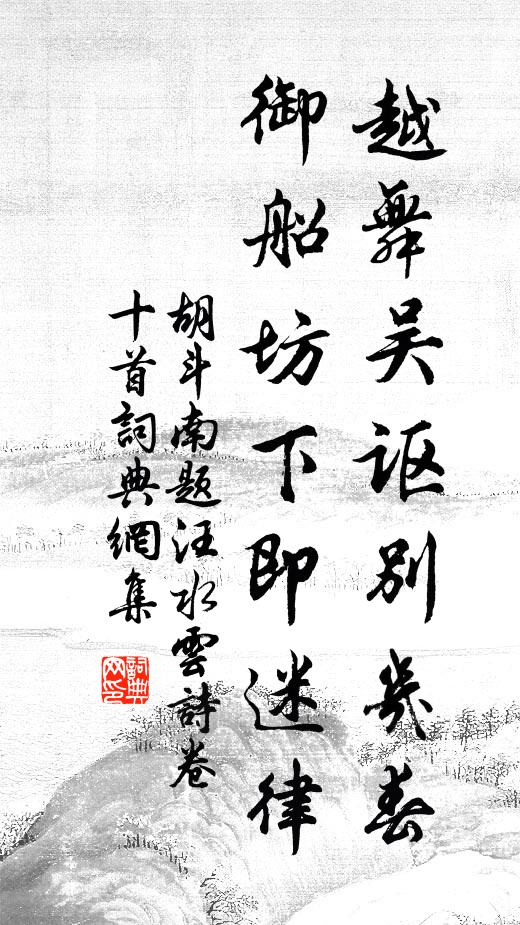 越舞吴讴别幾春
御船坊下即迷律
胡斗南题汪水雲詩卷
十首詞典網集
詞典
网印